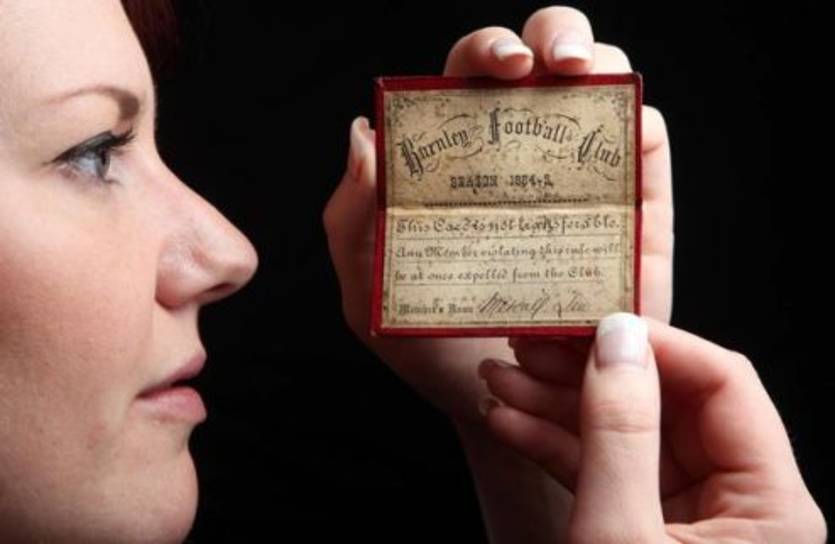 Burnley Football Club
SEASON 1884-5.
This Card is not transferable.
Any Member violating this rule will
be at once expelled from the Club.
Member's Name